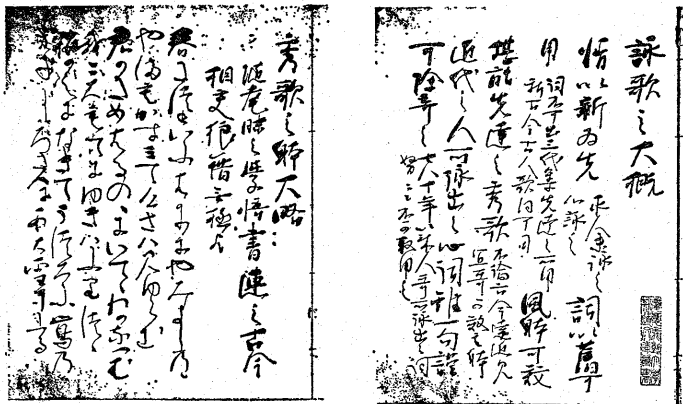 詠歌之大概
情以新為先 求人未詠之 心詠之 詞以舊可
用 詞不可出三代集先達之所用 新古今古人歌同可用之 風躰可效
堪能先達之秀歌 不論古今遠近見 宜哥可效其躰
近代之人所詠出之心詞雖一句謹
可除棄之 七八十年以来人哥所詠出之詞 努々不可取用之
秀歌之躰大略
隨耄昧之覺悟書連之古今
相交狼藉無極者
春たつといふはかりにやみよしのゝ
やまもかすみてけさはみゆらむ
君かためはるのゝにいてゝわかなつむ
我ころもてにゆきはふりつゝ
梅かえになきてうつろふ鶯の